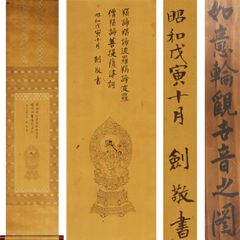 羯諦羯諦波羅羯諦波羅
僧羯諦菩提薩婆訶
昭和戊寅十月 劍敬書
昭和戊寅十月
劍敬書
如意輪観世音之図